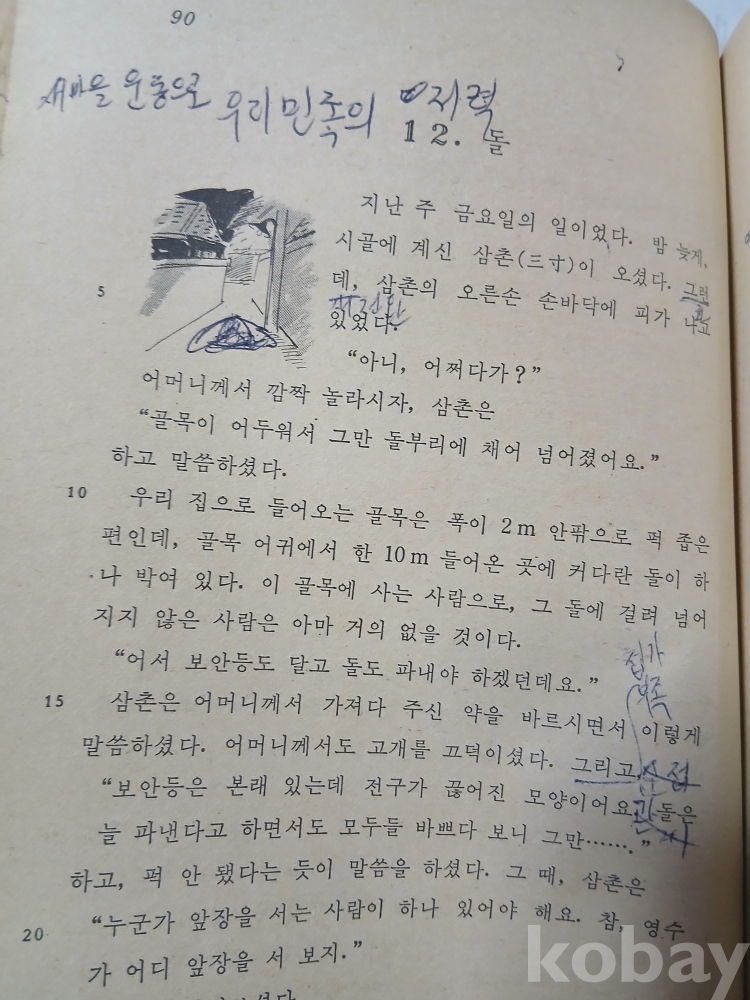 90
새마을 운동으로 우리민족의 저력
12. 돌
지난 주 금요일의 일이었다. 밤 늦게,
시골에 계신 삼촌(三寸)이 오셨다. 그런
5 데, 삼촌의 오른손 손바닥에 피가 나고
있었다.
“아니, 어쩌다가?”
어머니께서 깜짝 놀라시자, 삼촌은
“골목이 어두워서 그만 돌부리에 채어 넘어졌어요.”
하고 말씀하셨다.
10 우리 집으로 들어오는 골목은 폭이 2m 안팎으로 퍽 좁은
편인데, 골목 어귀에서 한 10m 들어온 곳에 커다란 돌이 하
나 박여 있다. 이 골목에 사는 사람으로, 그 돌에 걸려 넘어
지지 않은 사람은 아마 거의 없을 것이다.
“어서 보안등도 달고 돌도 파내야 하겠던데요.”
15 삼촌은 어머니께서 가져다 주신 약을 바르시면서 이렇게
말씀하셨다. 어머니께서도 고개를 끄덕이셨다. 그리고,
“보안등은 본래 있는데 전구가 끊어진 모양이어요. 돌은
늘 파낸다고 하면서도 모두들 바쁘다 보니 그만…….”
하고, 퍽 안 됐다는 듯이 말씀을 하셨다. 그 때, 삼촌은
20 “누군가 앞장을 서는 사람이 하나 있어야 해요. 참, 영수
가 어디 앞장을 서 보지.”
kobay